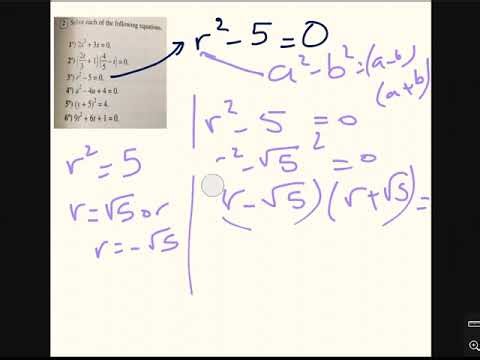 2 Solve each of the following equations.
1°) 2x² + 3x = 0.
2°) (2t/3 + 1)(4/5 - t) = 0.
3°) r² - 5 = 0.
4°) a² - 4a + 4 = 0.
5°) (t + 5)² = 4.
6°) 9t² + 6t + 1 = 0.
r² - 5 = 0
a² - b² = (a - b)
(a + b)
r² = 5
r = √5 or
r = -√5
r² - 5 = 0
r² - √5² = 0
(r - √5)(r + √5) =